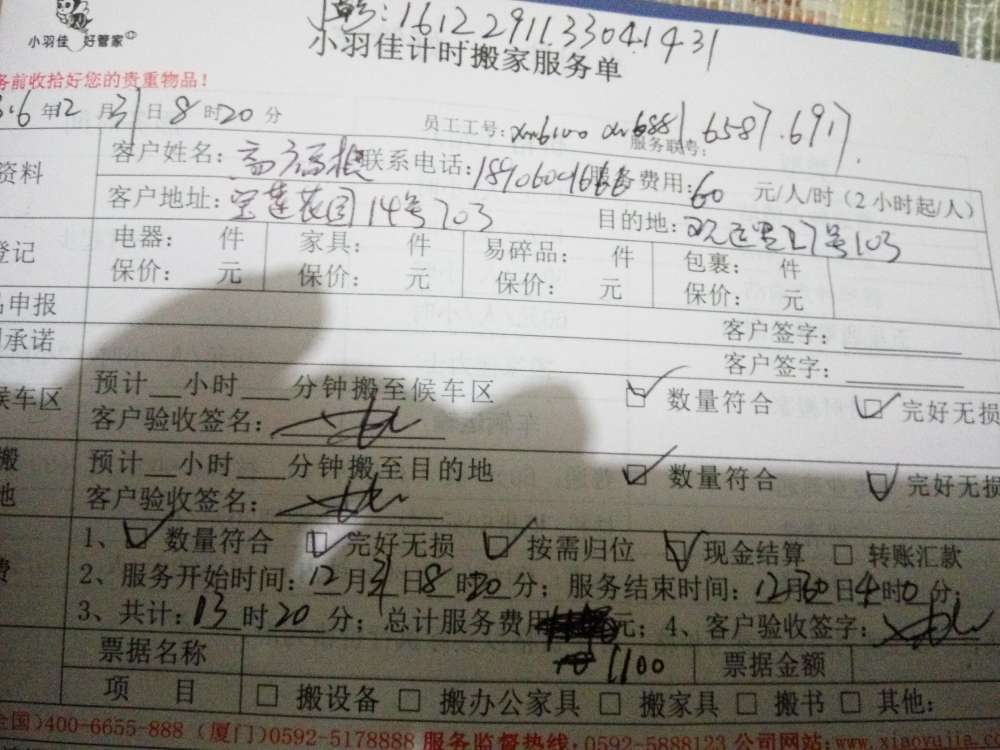 单号:161229113304.1431
小羽佳 好管家
小羽佳计时搬家服务单
务前收拾好您的贵重物品！
年12月31日8时20分 员工工号: 服务联号: 6587.6917.
资料 客户姓名: 联系电话: 服务费用:60元/人/时(2小时起/人)
客户地址:宝莲花园14号703 目的地:27号103
登记 电器: 件 家具: 件 易碎品: 件 包裹: 件
保价: 元 保价: 元 保价: 元 保价: 元
申报 客户签字:
承诺 客户签字:
候车区 预计__小时___分钟搬至候车区 ☑ 数量符合 ☑ 完好无损
客户验收签名:
搬 预计__小时___分钟搬至目的地 ☑ 数量符合 ☑ 完好无损
地 客户验收签名:
1、☑ 数量符合 ☑ 完好无损 ☑ 按需归位 ☑ 现金结算 □ 转账汇款
费 2、服务开始时间:12月31日8时20分; 服务结束时间:12月30日4时0分;
3、共计:13时20分; 总计服务费用 元; 4、客户验收签字:
票据名称 1100 票据金额
项 目 □ 搬设备 □ 搬办公家具 □ 搬家具 □ 搬书 □ 其他:
全国)400-6655-888 (厦门)0592-5178888 服务监督热线:0592-5888123 公司网站:www.xiaoyujia.com